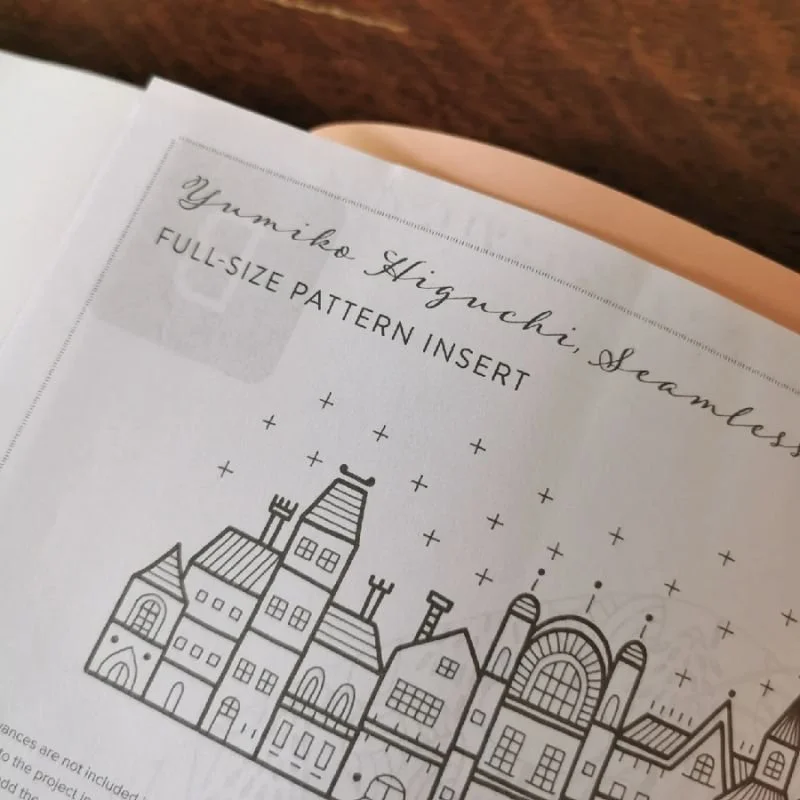 Yumiko Higuchi, Seamless
FULL-SIZE PATTERN INSERT
ances are not included
to the project in
dd the